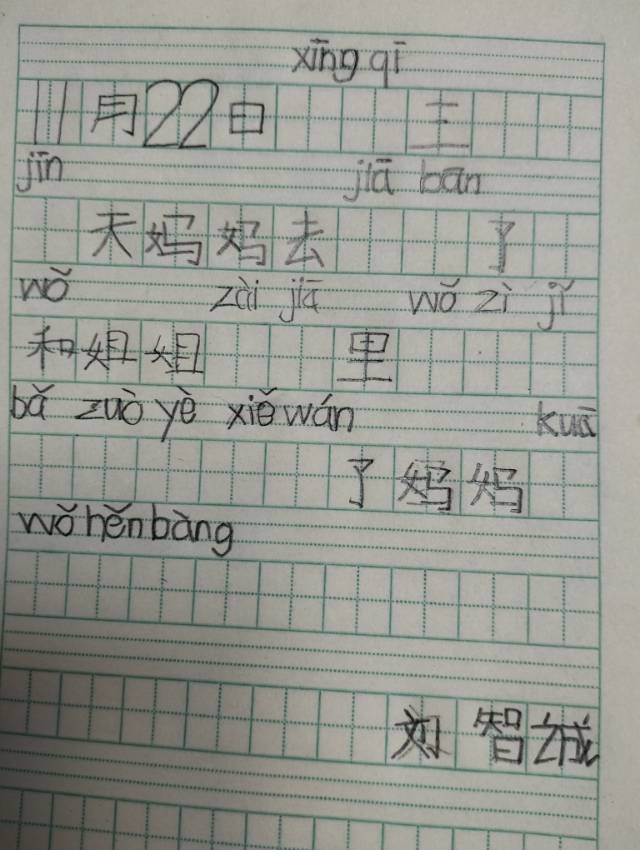 xīng qī
11月22日 三
jīn jiā bān
天妈妈去 了
wǒ zài jiā wǒ zì jǐ
和姐姐 里
bǎ zuò yè xiě wán kuā
了妈妈
wǒ hěn bàng
刘智城